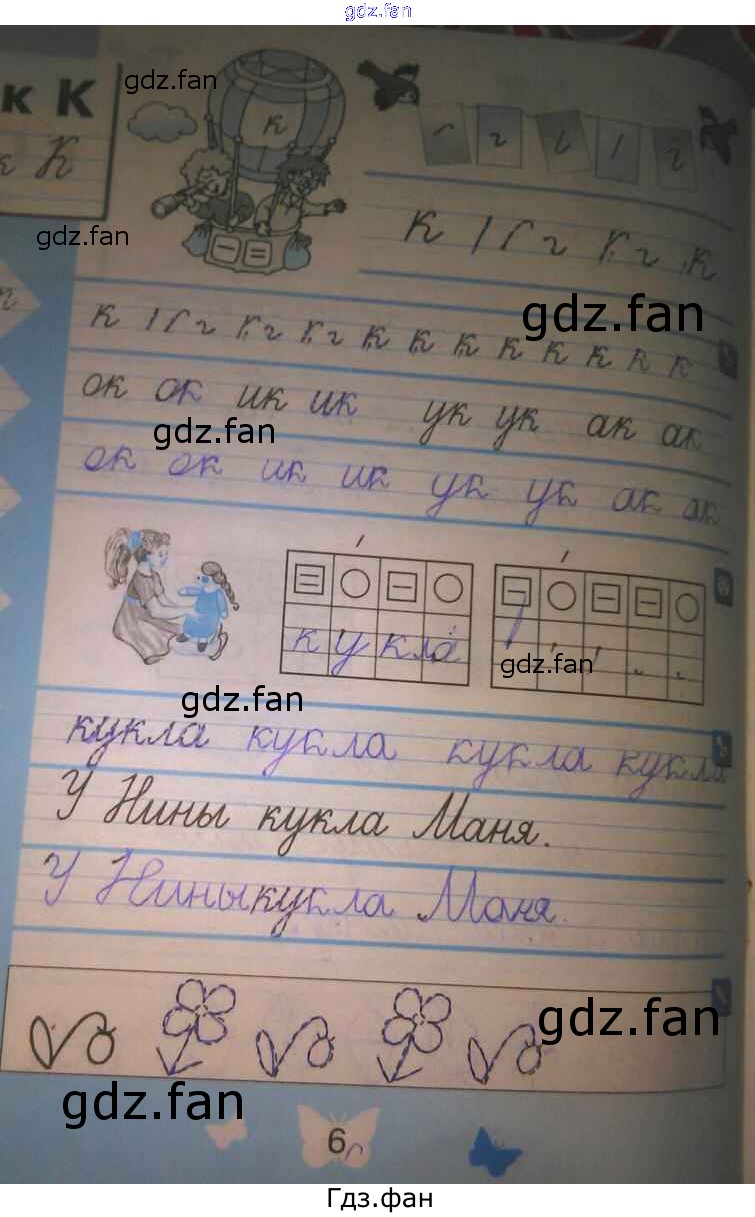 gdz.fan
gdz.fan
к К
К
к
gdz.fan
К I г г к
gdz.fan
к к к к к к к к к
ок ок ик ик ук ук ак ак
gdz.fan
ок ок ик ик ук ук ак ак
кукла
gdz.fan
gdz.fan
кукла кукла кукла кукла
У Нины кукла Маня.
У Нины кукла Маня.
gdz.fan
gdz.fan
6
Гдз.фан